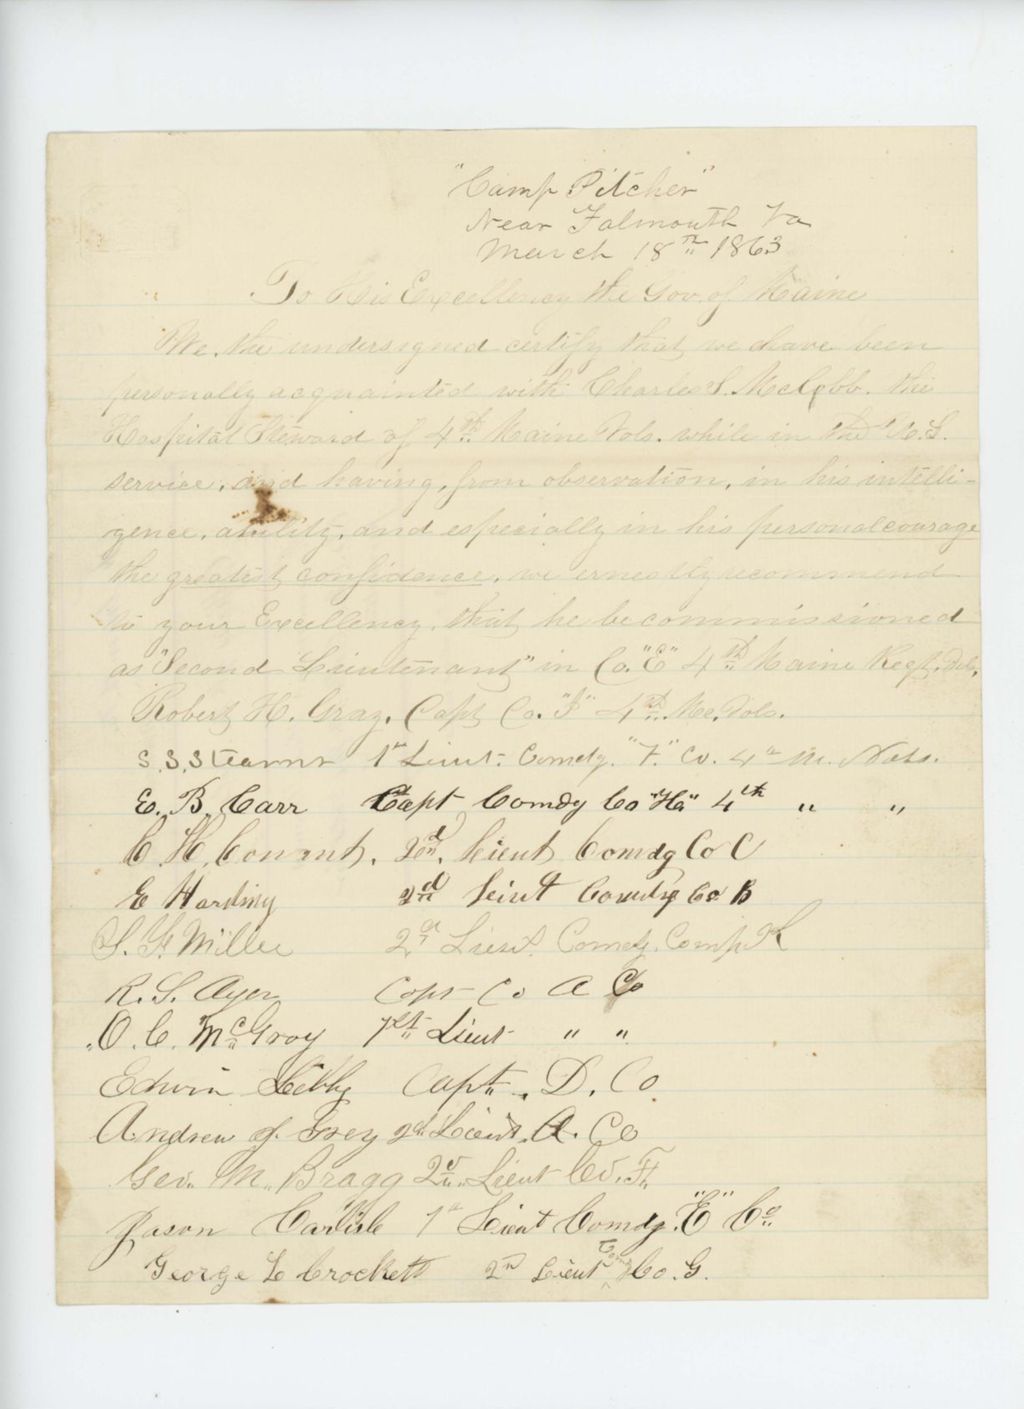 "Camp Pitcher"
Near Falmouth Va
March 18th 1863
To His Excellency the Gov. of Maine
We, the undersigned certify that, we have been
personally acquainted with Charles S. McCobb. the
Hospital Steward of 4th Maine Vols. while in the U.S.
service, and having, from observation, in his intelli-
gence, ability, and especially in his personal courage
the greatest confidence, we ernestly recommend
to your Excellency, that he be commissioned
as "Second Lieutenant" in Co. "E" 4th Maine Regt. Vols.
Robert H. Gray, Capt Co. "I" 4th Me. Vols.
S. S. Stearns 1st Lieut. Comdg. "F" Co. 4th M. Vols.
E. B. Carr Capt Comdg Co "H" 4th " "
C. H. Conant, 2nd. Lieut Comdg Co C
E Harding 2nd Leiut Comdg Co B
S. F. Miller 2d Lieut. Comdg. Comp. K
R. S. Ayer Capt Co A Co
O. C. McGray 1st Lieut " "
Edwin Libby Capt. D. Co
Andrew J. Grey 2d Lieut. A. Co
Geo. M. Bragg 2d Lieut Co. F.
Jason Carlisle 1st Lieut Comdg. "E" Co
George L Crockett 2nd Lieut Com Co. G.